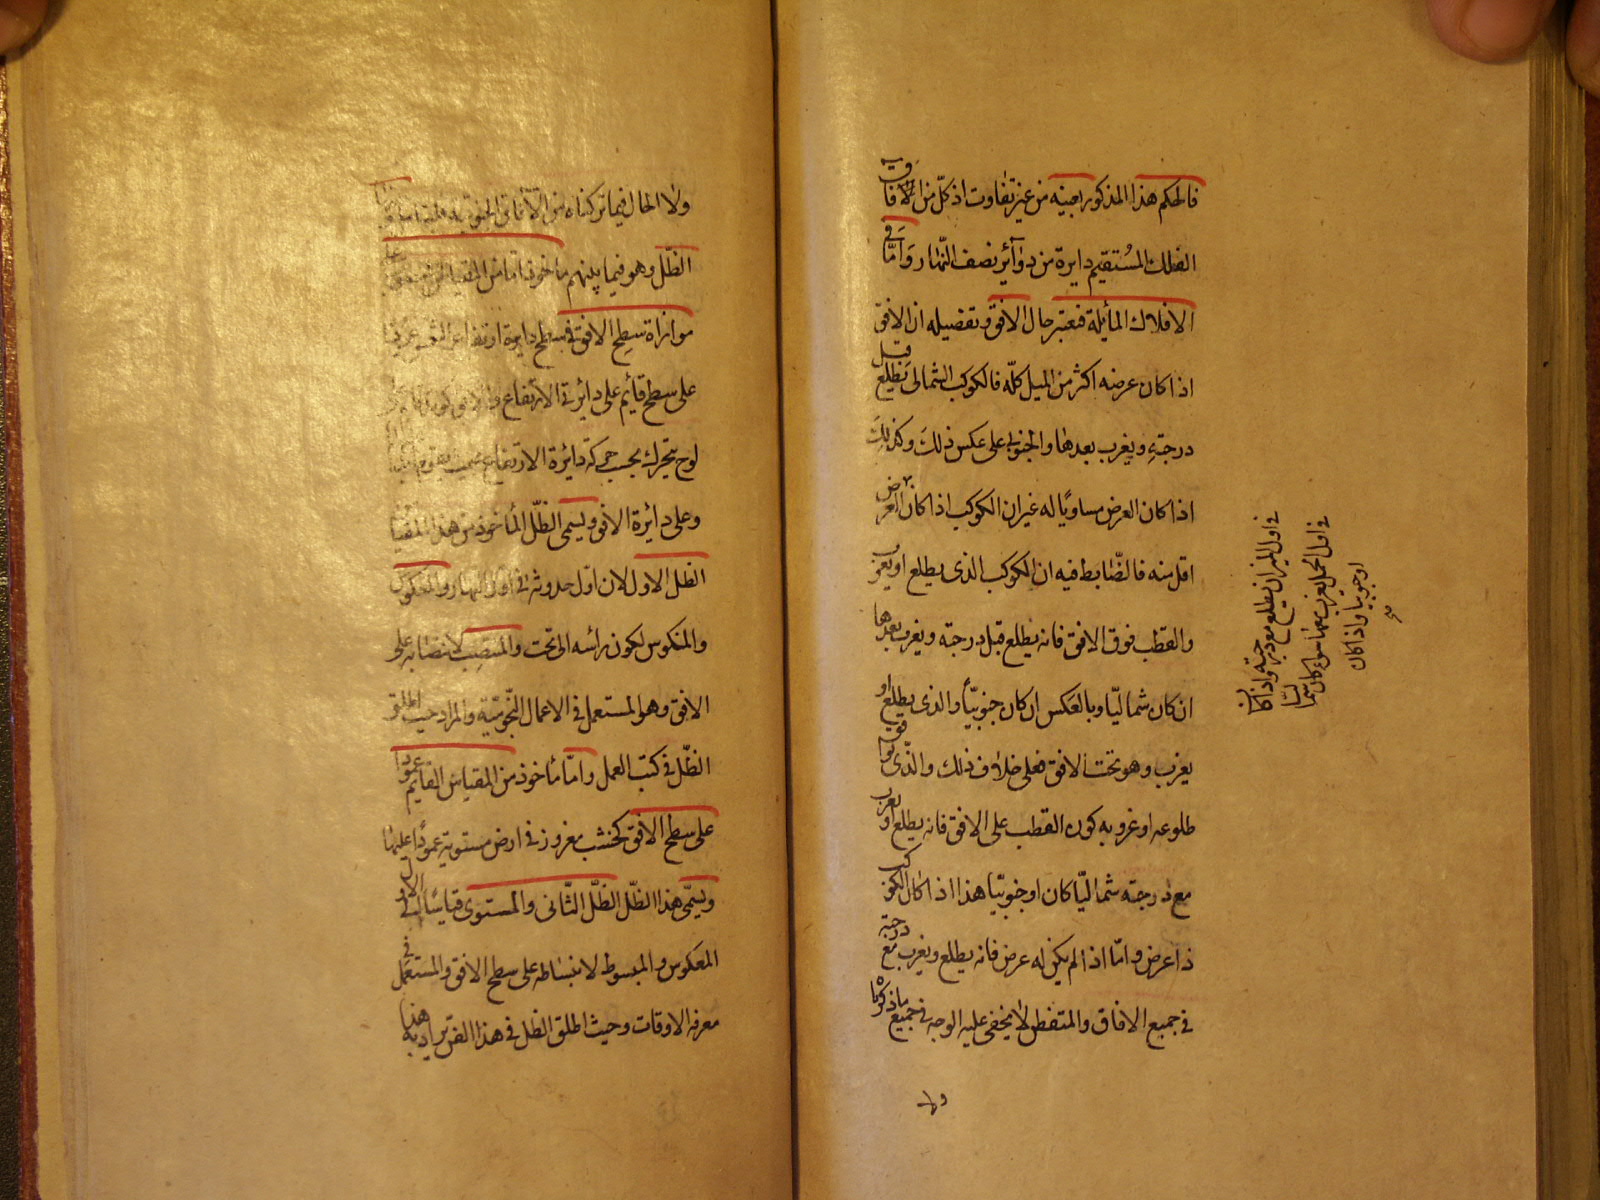 فالحكم هذا المذكور بعينه من غير تفاوت اذ كل من الآفاق
الفلك المستقيم دايرة من دوآئر نصف النهار وامّا فى
الافلاك المائلة فتعتبر حال الافق وتفصيله ان الافق
اذا كان عرضه اكثر من الميل كلّه فالكوكب الشمالى يطلع قبل
درجته ويغرب بعدها والجنوبى على عكس ذلك وكذلك
اذا كان العرض مساويًا له غير ان الكوكب اذا كان العرض
اقل منه فالضّابط فيه ان الكوكب الذى يطلع او يغرب
والقطب فوق الافق فانه يطلع قبل درجته ويغرب بعدها
ان كان شماليّا وبالعكس ان كان جنوبيّاً والذى يطلع او
يغرب وهو تحت الافق فعلى خلاف ذلك والذّى توافق
طلوعه او غروبه كون القطب على الافق فانه يطلع او يغرب
مع درجته شماليّا كان او جنوبيّا هذا اذا كان الكوكب
ذا عرض وامّا اذا لم يكن له عرض فانه يطلع ويغرب مع درجته
فى جميع الافاق والمتفطن لا يخفى عليه الوجه فى جميع ما ذكرناه
ولا
فى اول الميزان يطلع مع درجته واذا كان
فى اول الحمل يغرب معها سواء كان شماليّا
او جنوبيا واذا كان
ولا الحال فيما تركناه من الآفاق الجنوبية
الظّل وهو فيما بينهم مأخوذ اما من المقياس
موازاة سطح الافق فى سطح دايرة ارتفاع
على سطح قائم على دائرتى الارتفاع والافق
لوح يتحرك بحسب حركة دائرة الارتفاع بحيث يقوم
وعلى دايرة الافق ويسمى الظّل المأخوذ من هذا المقياس
الظل الاول لان اول حدوثه فى اول النهار والمعكوس
والمنكوس لكون رأسه الى تحت والمنتصب لانتصابه على
الافق وهو المستعمل فى الاعمال النّجوميّة والمراد حيث اطلق
الظّل فى كتب العمل وامّا مأخوذ من المقياس القايم عمودا
على سطح الافق كخشب مغروز فى ارض مستوية عمودًا عليها
ويسمّى هذا الظّل الظّل الثّانى والمستوى قياسًا الى الاول
المعكوس والمبسوط لانبساطه على سطح الافق والمستعمل فى
معرفة الاوقات وحيث اطلق الظل فى هذا الفن يراد به هذا